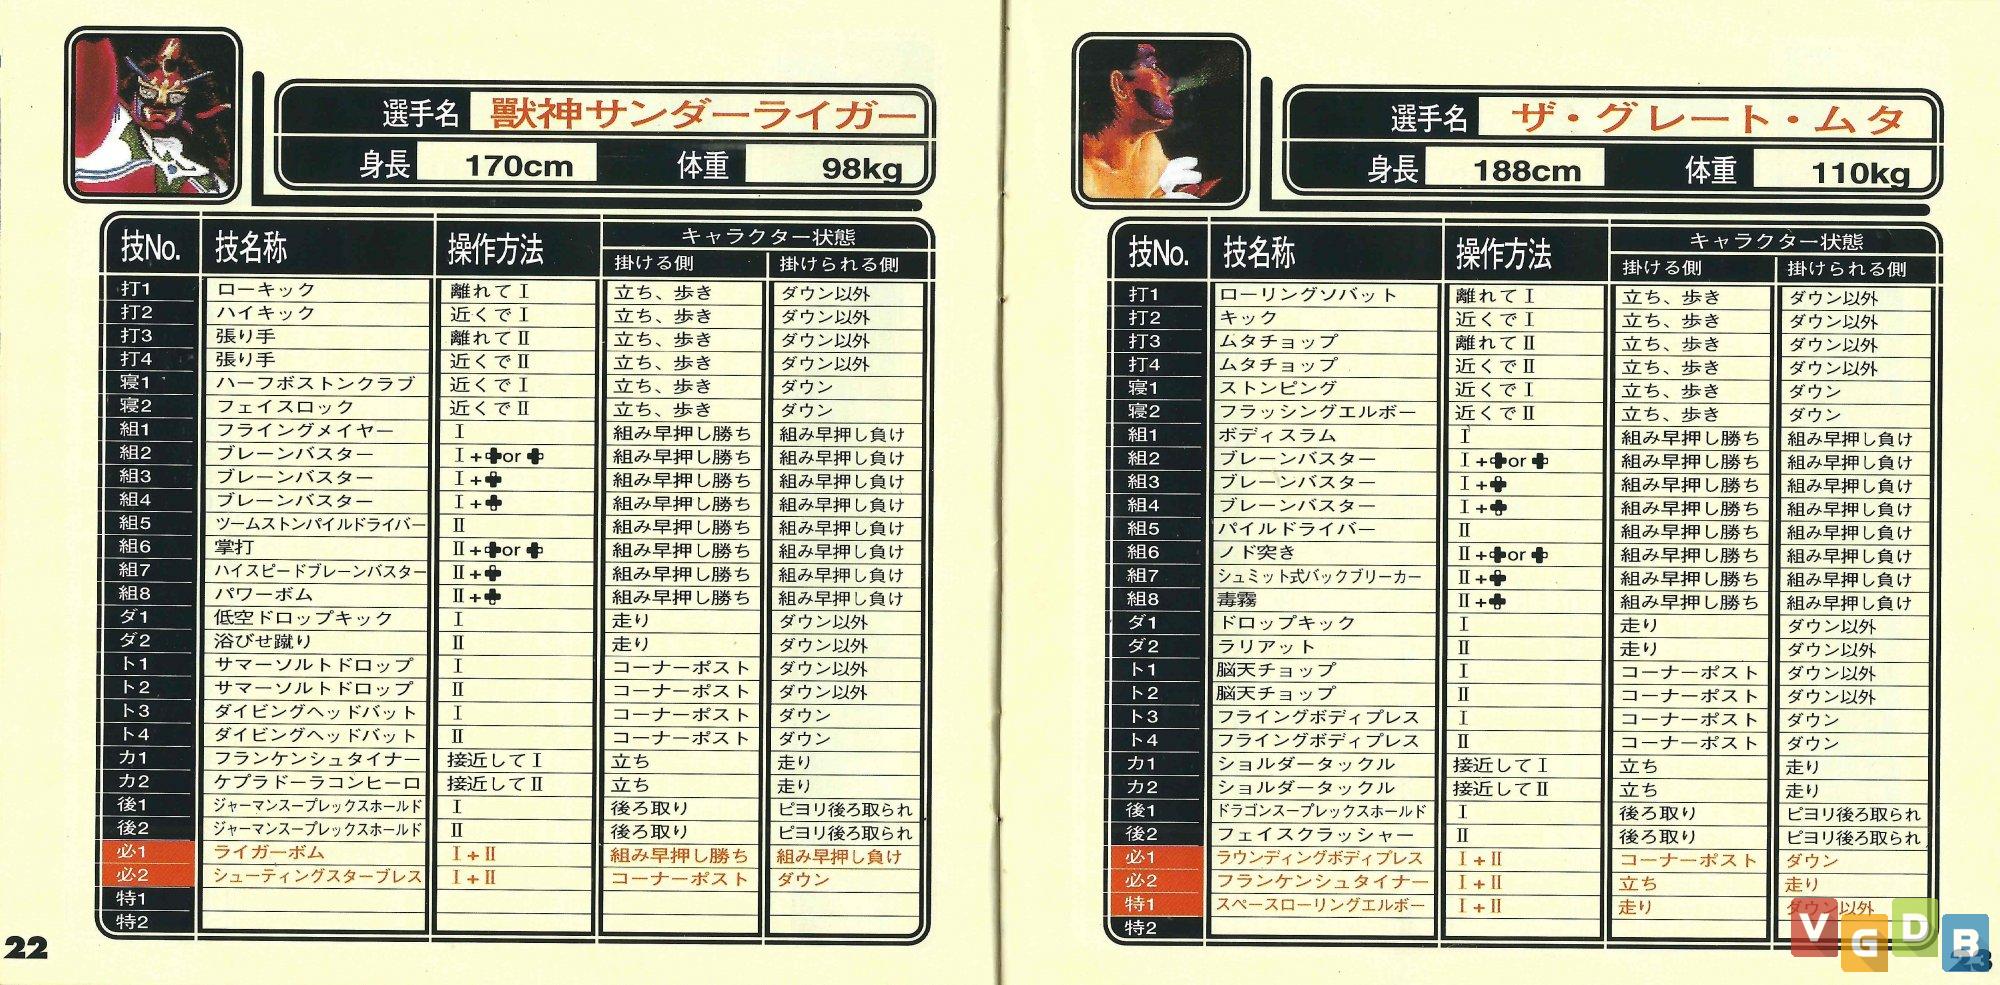 選手名 獸神サンダーライガー
身長 170cm 体重 98kg
技No. 技名称 操作方法 キャラクター状態
掛ける側 掛けられる側
打1 ローキック 離れてⅠ 立ち、歩き ダウン以外
打2 ハイキック 近くでⅠ 立ち、歩き ダウン以外
打3 張り手 離れてⅡ 立ち、歩き ダウン以外
打4 張り手 近くでⅡ 立ち、歩き ダウン以外
寝1 ハーフボストンクラブ 近くでⅠ 立ち、歩き ダウン
寝2 フェイスロック 近くでⅡ 立ち、歩き ダウン
組1 フライングメイヤー Ⅰ 組み早押し勝ち 組み早押し負け
組2 ブレーンバスター Ⅰ+✚or✚ 組み早押し勝ち 組み早押し負け
組3 ブレーンバスター Ⅰ+✚ 組み早押し勝ち 組み早押し負け
組4 ブレーンバスター Ⅰ+✚ 組み早押し勝ち 組み早押し負け
組5 ツームストンパイルドライバー Ⅱ 組み早押し勝ち 組み早押し負け
組6 掌打 Ⅱ+✚or✚ 組み早押し勝ち 組み早押し負け
組7 ハイスピードブレーンバスター Ⅱ+✚ 組み早押し勝ち 組み早押し負け
組8 パワーボム Ⅱ+✚ 組み早押し勝ち 組み早押し負け
ダ1 低空ドロップキック Ⅰ 走り ダウン以外
ダ2 浴びせ蹴り Ⅱ 走り ダウン以外
ト1 サマーソルトドロップ Ⅰ コーナーポスト ダウン以外
ト2 サマーソルトドロップ Ⅱ コーナーポスト ダウン以外
ト3 ダイビングヘッドバット Ⅰ コーナーポスト ダウン
ト4 ダイビングヘッドバット Ⅱ コーナーポスト ダウン
カ1 フランケンシュタイナー 接近してⅠ 立ち 走り
カ2 ケブラドーラコンヒーロ 接近してⅡ 立ち 走り
後1 ジャーマンスープレックスホールド Ⅰ 後ろ取り ピヨリ後ろ取られ
後2 ジャーマンスープレックスホールド Ⅱ 後ろ取り ピヨリ後ろ取られ
必1 ライガーボム Ⅰ+Ⅱ 組み早押し勝ち 組み早押し負け
必2 シューティングスタープレス Ⅰ+Ⅱ コーナーポスト ダウン
特1
特2
22
選手名 ザ・グレート・ムタ
身長 188cm 体重 110kg
技No. 技名称 操作方法 キャラクター状態
掛ける側 掛けられる側
打1 ローリングソバット 離れてⅠ 立ち、歩き ダウン以外
打2 キック 近くでⅠ 立ち、歩き ダウン以外
打3 ムタチョップ 離れてⅡ 立ち、歩き ダウン以外
打4 ムタチョップ 近くでⅡ 立ち、歩き ダウン以外
寝1 ストンピング 近くでⅠ 立ち、歩き ダウン
寝2 フラッシングエルボー 近くでⅡ 立ち、歩き ダウン
組1 ボディスラム Ⅰ 組み早押し勝ち 組み早押し負け
組2 ブレーンバスター Ⅰ+✚or✚ 組み早押し勝ち 組み早押し負け
組3 ブレーンバスター Ⅰ+✚ 組み早押し勝ち 組み早押し負け
組4 ブレーンバスター Ⅰ+✚ 組み早押し勝ち 組み早押し負け
組5 パイルドライバー Ⅱ 組み早押し勝ち 組み早押し負け
組6 ノド突き Ⅱ+✚or✚ 組み早押し勝ち 組み早押し負け
組7 シュミット式バックブリーカー Ⅱ+✚ 組み早押し勝ち 組み早押し負け
組8 毒霧 Ⅱ+✚ 組み早押し勝ち 組み早押し負け
ダ1 ドロップキック Ⅰ 走り ダウン以外
ダ2 ラリアット Ⅱ 走り ダウン以外
ト1 脳天チョップ Ⅰ コーナーポスト ダウン以外
ト2 脳天チョップ Ⅱ コーナーポスト ダウン以外
ト3 フライングボディプレス Ⅰ コーナーポスト ダウン
ト4 フライングボディプレス Ⅱ コーナーポスト ダウン
カ1 ショルダータックル 接近してⅠ 立ち 走り
カ2 ショルダータックル 接近してⅡ 立ち 走り
後1 ドラゴンスープレックスホールド Ⅰ 後ろ取り ピヨリ後ろ取られ
後2 フェイスクラッシャー Ⅱ 後ろ取り ピヨリ後ろ取られ
必1 ラウンディングボディプレス Ⅰ+Ⅱ コーナーポスト ダウン
必2 フランケンシュタイナー Ⅰ+Ⅱ 立ち 走り
特1 スペースローリングエルボー Ⅰ+Ⅱ 走り ダウン以外
特2
VGDB
23